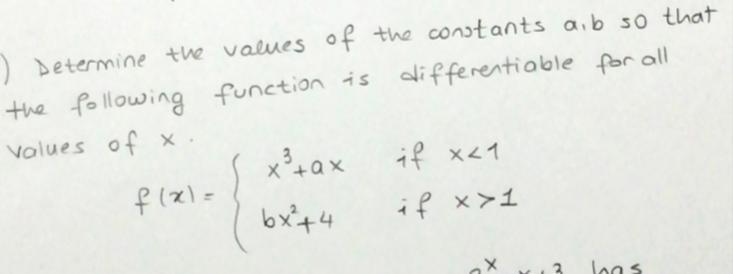 ) Determine the values of the constants a,b so that
the following function is differentiable for all
values of x.
f(x) = { x³+ax if x<1
bx²+4 if x>1
has